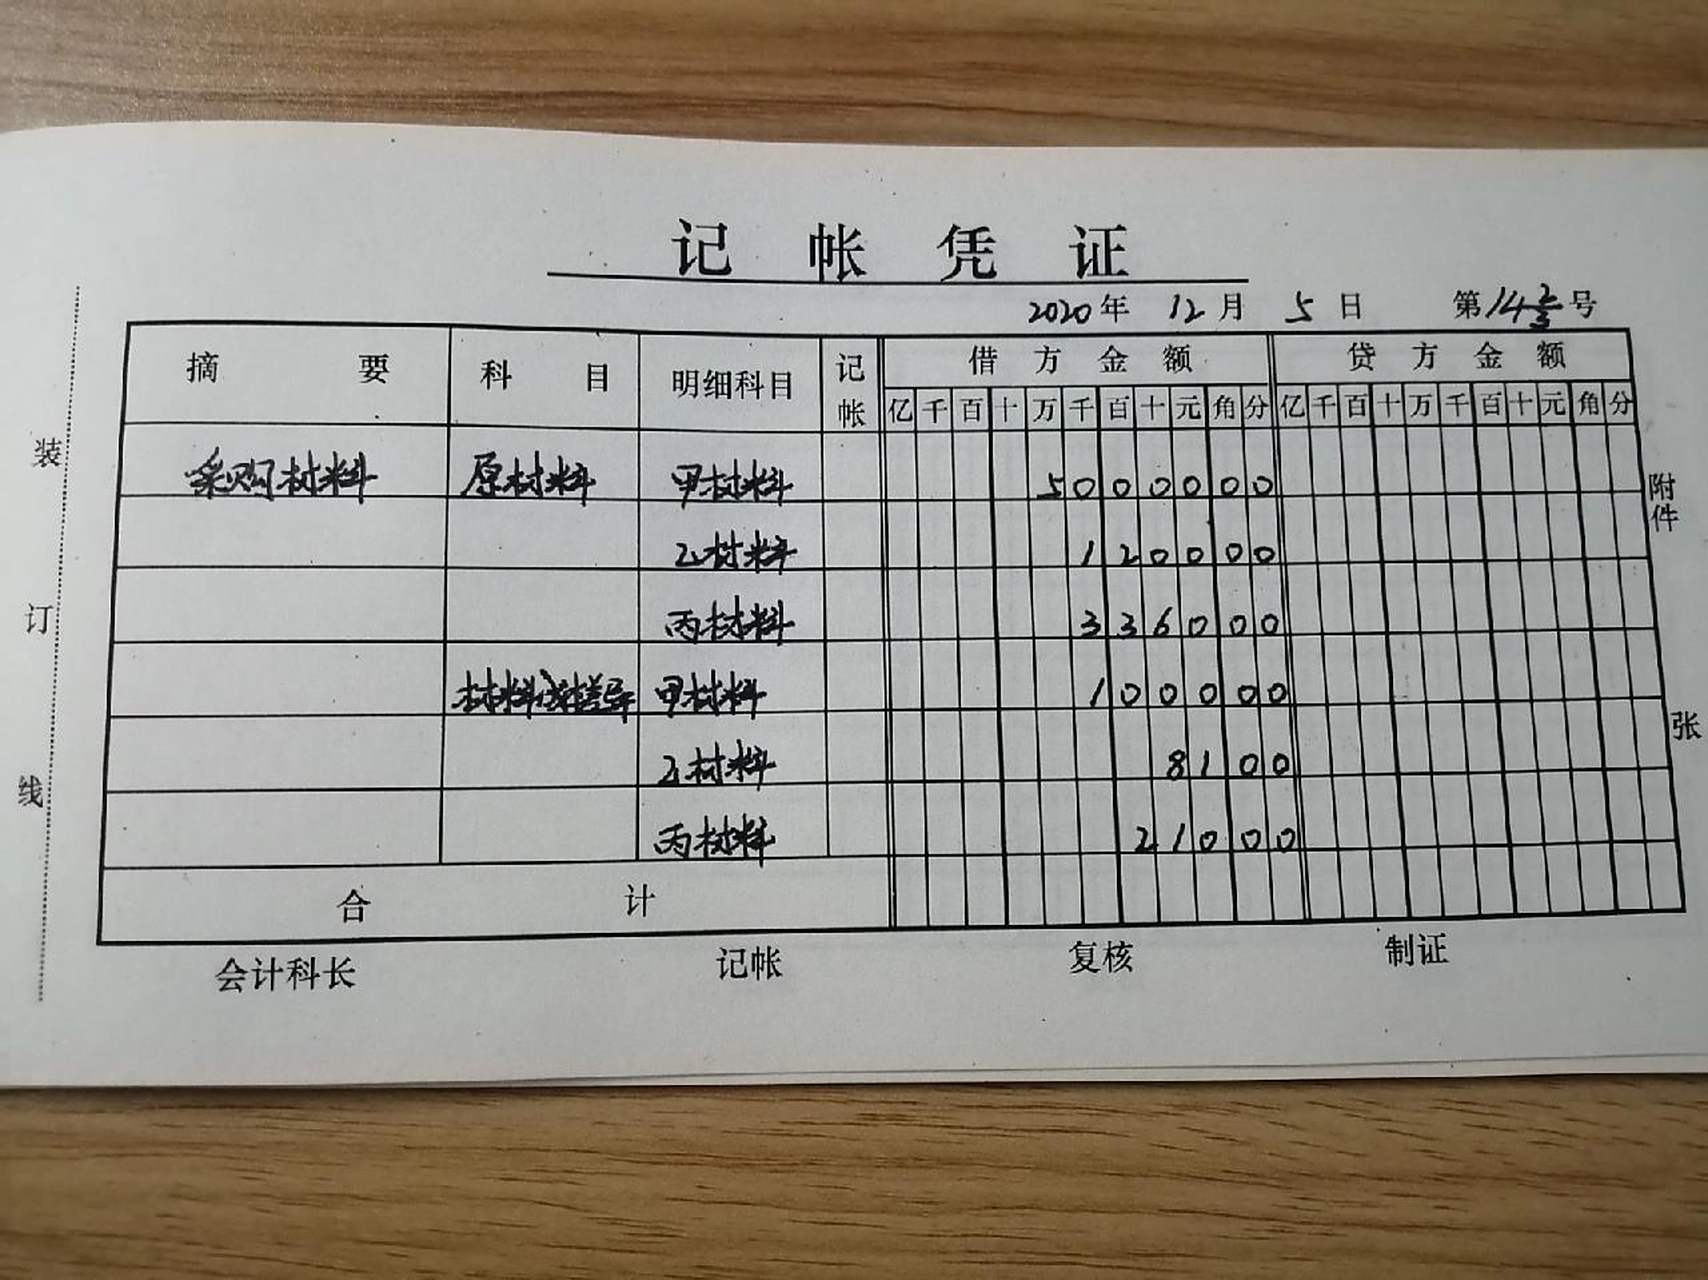 记帐凭证
2020年 12月 5日 第14 2/3号
摘要 科目 明细科目 记帐 借方金额 贷方金额
亿千百十万千百十元角分 亿千百十万千百十元角分
采购材料 原材料 甲材料 5000000
乙材料 120000
丙材料 336000
材料成本差异 甲材料 100000
乙材料 8100
丙材料 21000
合计
会计科长 记帐 复核 制证
附件 张
装订线